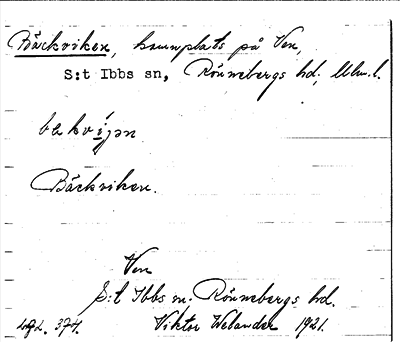 Bäckviken, hamnplats på Ven,
S:t Ibbs sn, Rönnebergs hd, Mlm. l.
Bäckviken.
Ven
S:t Ibbs sn. Rönnebergs hd.
374. Viktor Welander 1921.